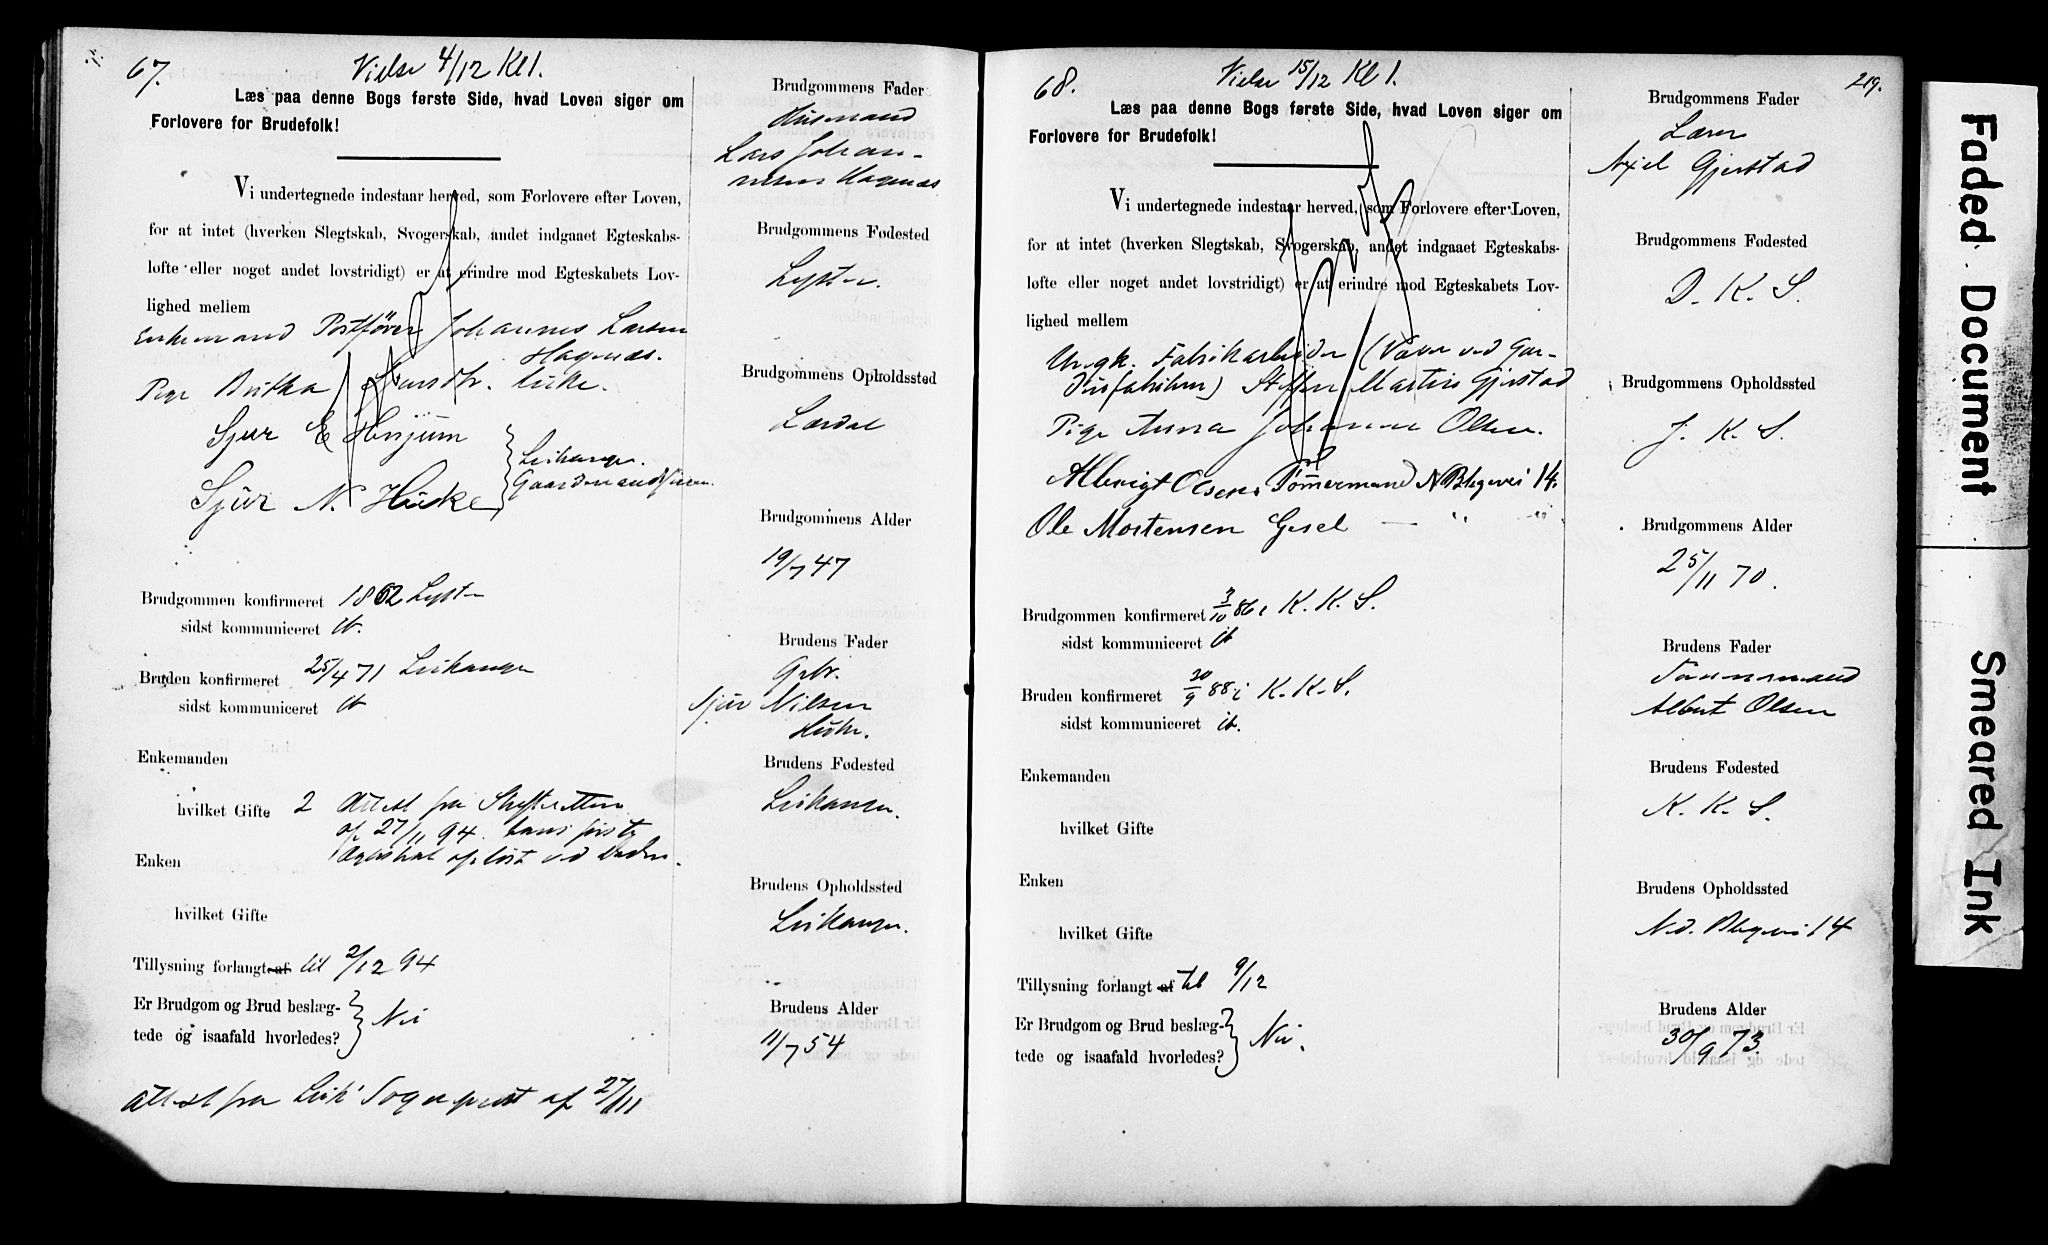 67.
Vielse 4/12 Kl 1.
Læs paa denne Bogs første Side, hvad Loven siger om
Forlovere for Brudefolk!
Vi undertegnede indestaar herved, som Forlovere efter Loven,
for at intet (hverken Slegtskab, Svogerskab, andet indgaaet Egteskabs-
løfte eller noget andet lovstridigt) er at erindre mod Egteskabets Lov-
lighed mellem
Enkemand Postfører Johannes Larsen
Hagenæs.
Pige Britha Sjursdtr. Huke.
Sjur E Henjum
Sjur N. Huke
Leikanger
Brudgommen konfirmeret 1862 Lyster
sidst kommuniceret
Bruden konfirmeret 25/4 71 Leikanger
sidst kommuniceret
Enkemanden
hvilket Gifte 2 Attest fra Skifteretten
af 27/11 94. hans første
Ægteskab opløst ved Døden.
Enken
hvilket Gifte
Tillysning forlangt af til 2/12 94
Er Brudgom og Brud beslæg-
tede og isaafald hvorledes? Nei
Attest fra Leik Sogneprest af 27/11
Brudgommens Fader
Husmand
Lars Johan-
nesen Hagenæs
Brudgommens Fødested
Lyster.
Brudgommens Opholdssted
Lærdal
Brudgommens Alder
19/7 47
Brudens Fader
Gbr.
Sjur Nilsen
Huke.
Brudens Fødested
Leikanger.
Brudens Opholdssted
Leikanger.
Brudens Alder
11/7 54
68.
Vielse 15/12 Kl 1.
219.
Læs paa denne Bogs første Side, hvad Loven siger om
Forlovere for Brudefolk!
Vi undertegnede indestaar herved, som Forlovere efter Loven,
for at intet (hverken Slegtskab, Svogerskab, andet indgaaet Egteskabs-
løfte eller noget andet lovstridigt) er at erindre mod Egteskabets Lov-
lighed mellem
Ungk. Fabrikarbeider (Væver ved Gar-
dinfabriken) Steffen Martin Gjerstad
Pige Anna Johanne Olsen.
Olsen Tømermand N Blegevei 14.
Ole Mortensen Gesel — " "
Brudgommen konfirmeret 3/10 86 i K. K. S.
sidst kommuniceret
Bruden konfirmeret 30/9 88 i K. K. S.
sidst kommuniceret
Enkemanden
hvilket Gifte
Enken
hvilket Gifte
Tillysning forlangt af til 9/12
Er Brudgom og Brud beslæg-
tede og isaafald hvorledes? Nei.
Brudgommens Fader
Lærer
Axel Gjerstad
Brudgommens Fødested
D. K. S.
Brudgommens Opholdssted
J. K. S.
Brudgommens Alder
25/11 70.
Brudens Fader
Tømmermand
Albert Olsen
Brudens Fødested
K. K. S.
Brudens Opholdssted
Ned. Blegevei 14
Brudens Alder
30/9 73.
Faded Document
Smeared Ink